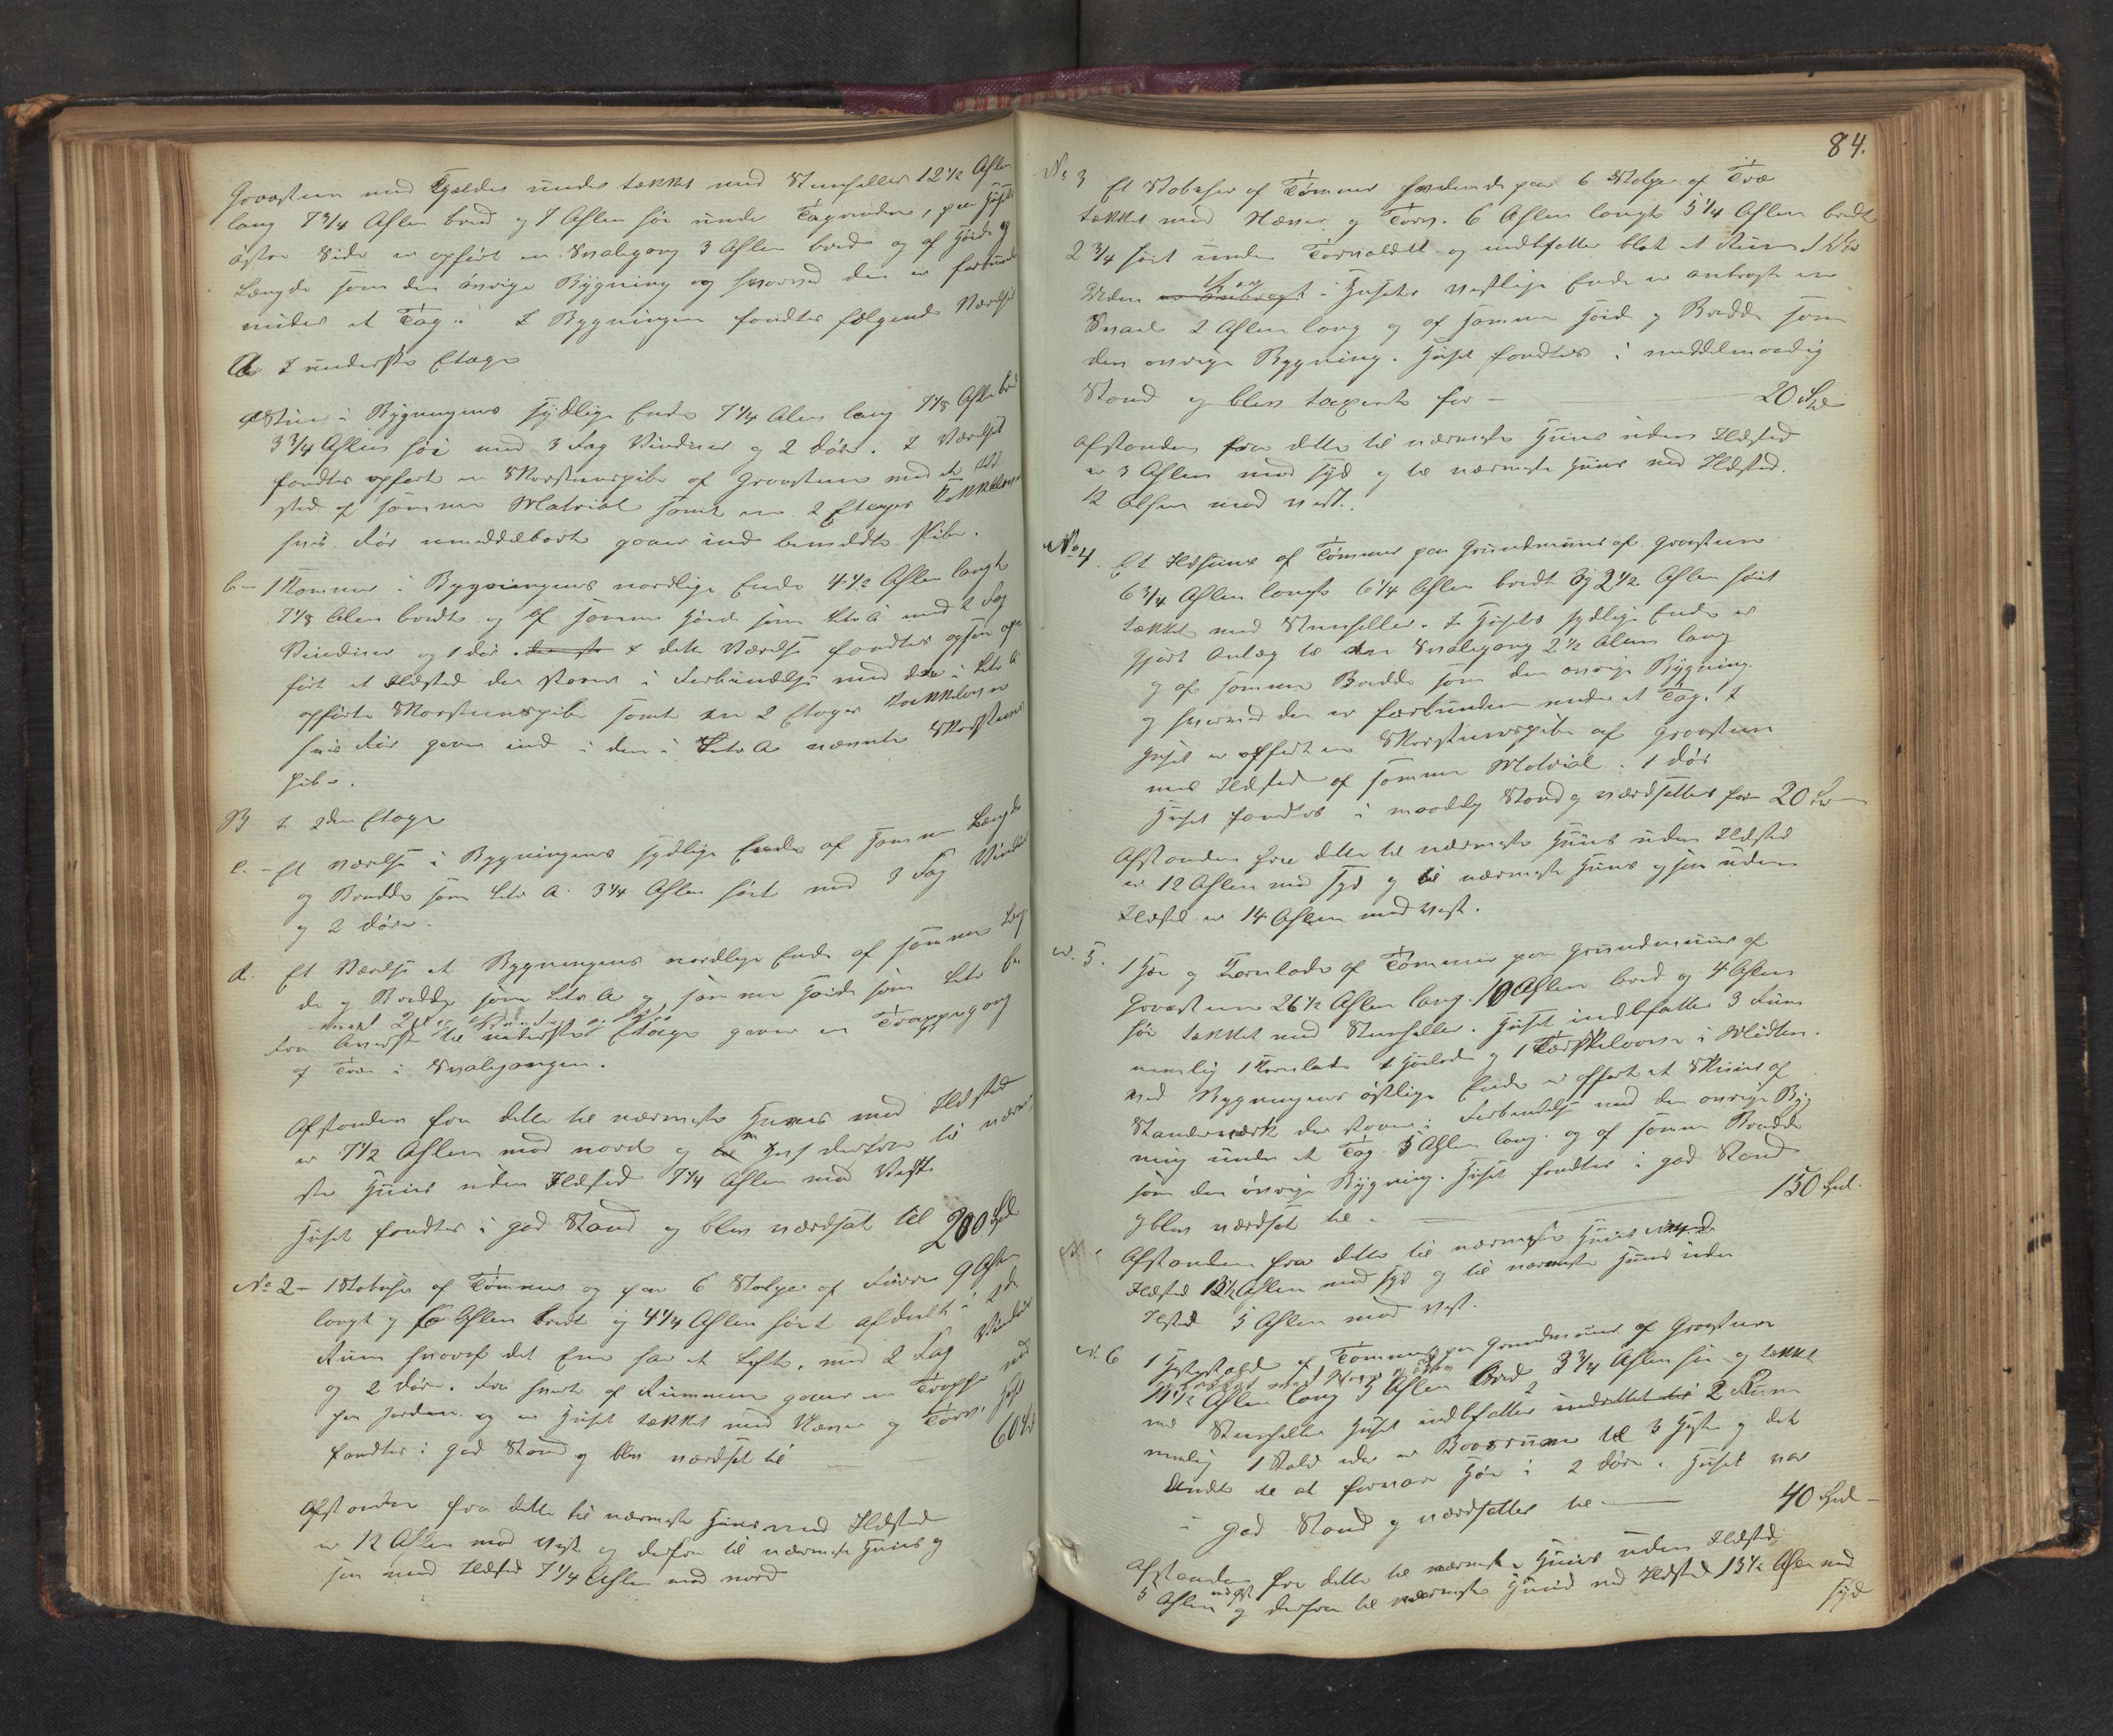 Graasteen med Kjelder under tækket med Steenheller 12 1/2 Allen
lang 7 3/4 Allen bred og 7 Allen høi under Tagrøden, paa Husets
østre Side er opført en Svalegang 3 Allen bred og af Høide og
Længde som den øvrige Bygning og hvormed den er forbunden
under et Tag. I Bygningen fandtes følgende Værelser
A I underste Etage
a Stue i Bygningens sydlige Ende 7 1/4 Alen lang 7 1/8 Allen bred
3 3/4 Allen høi med 3 Fag Vinduer og 2 Døre. I Værelset
fandtes opført en Skorsteenspibe af Graasteen med et Ild
sted af samme Matrial samt en 2 Etages Kakkelovn
hvis Rør umiddelbart gaaer ind bemeldte Pibe.
b – 1 Kammer i Bygningens nordlige Ende 4 1/2 Allen langt
7 1/8 Alen bredt og af samme Høide som Litr a med 2 Fag
Vinduer og 1 Dør. I dette Værelse fandtes ogsaa op
ført et Ildsted der staaer i Forbindelse med den i Litr a
opførte Skorsteenspibe samt en 2 Etages Kakkelovn
hvis Rør gaaer ind i den i Litr a nævnte Skorsteens
pibe.
B I 2den Etage
c. – Et Værelse i Bygningens sydlige Ende af samme Længde
og Bredde som Litr a. 3 1/4 Allen høit med 3 Fag Vinduer
og 2 Døre.
d. Et Værelse i Bygningens nordlige Ende af samme Læng
de og Bredde som Litr a og samme Høide som Litr
med 2 Fag Vinduer og
Fra øverste til underste Etage gaaer en Trappegang
af Træ i Svalegangen.
Afstanden fra dette til nærmeste Huus med Ildsted
er 7 1/2 Allen mod nord og derfra til nærme
ste Huus uden Ildsted 7 1/4 Allen mod Vest
Huset fandtes i god Stand og blev værdsat til 200 Spd
No 2 – 1 Stabuhr af Tømmer og paa 6 Stolper af Furre 9 Allen
langt og 6 Allen bredt og 4 1/4 Allen høit afdeelt i 2de
Rum hvoraf det Ene har et Loft, med 2 Fag Vinduer
og 2 Døre. Fra hvert af Rummene gaaer en Trappe ned
paa Jorden og er Huset tækket med Næver og Torv. Huset
fandtes i god Stand og blev værdsat til — 60 Spd
Afstanden fra dette til nærmeste Huus med Ildsted
er 12 Allen mod Vest og derfra til nærmeste Huus og
saa med Ildsted 7 1/4 Allen mod nord
84.
No 3 Et Stabuhr af Tømmer staaende paa 6 Stolper af Træ
tækket med Næver og Torv. 6 Allen langt 5 1/4 Allen bredt
2 3/4 høit under Torvoldet og indbefatter blot et Rum 1 Dør
Uden i Husets vestlige Ende er anbragt en
Svale 2 Allen lang og af samme Høide og Bredde som
den øvrige Bygning. Huset fandtes i middelmaadig
Stand og blev taxeret for – 20 Spd
Afstanden fra dette til nærmeste Huus uden Ildsted
er 3 Allen mod syd og til nærmeste Huus med Ildsted
12 Allen mod vest.
No 4. Et Ildhuus af Tømmer paa Grundmuur af Graasteen
6 3/4 Allen langt 6 1/4 Allen bredt og 2 1/2 Allen høit
tækket med Steenheller. I Husets sydlige Ende er
gjort Anlæg til en Svalegang 2 1/2 Alen lang
og af samme Bredde som den øvrige Bygning
og hvormed den er forbunden under et Tag. I
Huset er opført en Skorsteenspibe af Graasteen
med Ildsted af samme Matrial. 1 Dør
Huset fandtes i maadelig Stand og værdsattes for 20 Spd
Afstanden fra dette til nærmeste Huus uden Ildsted
er 12 Allen mod syd og til nærmeste Huus ogsaa uden
Ildsted er 14 Allen mod Vest.
No. 5. 1 Høe og Kornlade af Tømmer paa Grundmuur af
Graasteen 26 1/2 Allen lang. 10 Allen bred og 4 Allen
høi tækket med Steenheller. Huset indbefatter 3 Rum
nemlig 1 Kornlade 1 Høelade og 1 Tærskeloove i Midten.
Ved Bygningens østlige Ende er opført et Skuur af
Standerværk der staaer i Forbindelse med den øvrige Byg
ning under et Tag 5 Allen lang og af samme Bredde
som den øvrige Bygning. Huset fandtes i god Stand
og blev værdsat til – 150 Spd.
Afstanden fra dette til nærmeste Huus med
Ildsted 13 1/2 Allen mod syd og til nærmeste Huus uden
Ildsted 5 Allen mod Vest.
No. 6 1 Hestestald af Tømmer paa Grundmuur af Graasteen
11 1/2 Allen lang 9 Allen bred 3 3/4 Allen høi og tækket
med Steenheller Huset indbefatter indrettet til 2 Rum
nemlig 1 Stald med Baasrum til 3 Heste og det
andet til at forvare Høe i 2 Døre. Huset var
i god Stand og værdsattes til – 40 Spd –
Afstanden fra dette til nærmeste Huus uden Ildsted
5 Allen og derfra til nærmeste Huus med Ildsted 13 1/2 Allen mod
syd